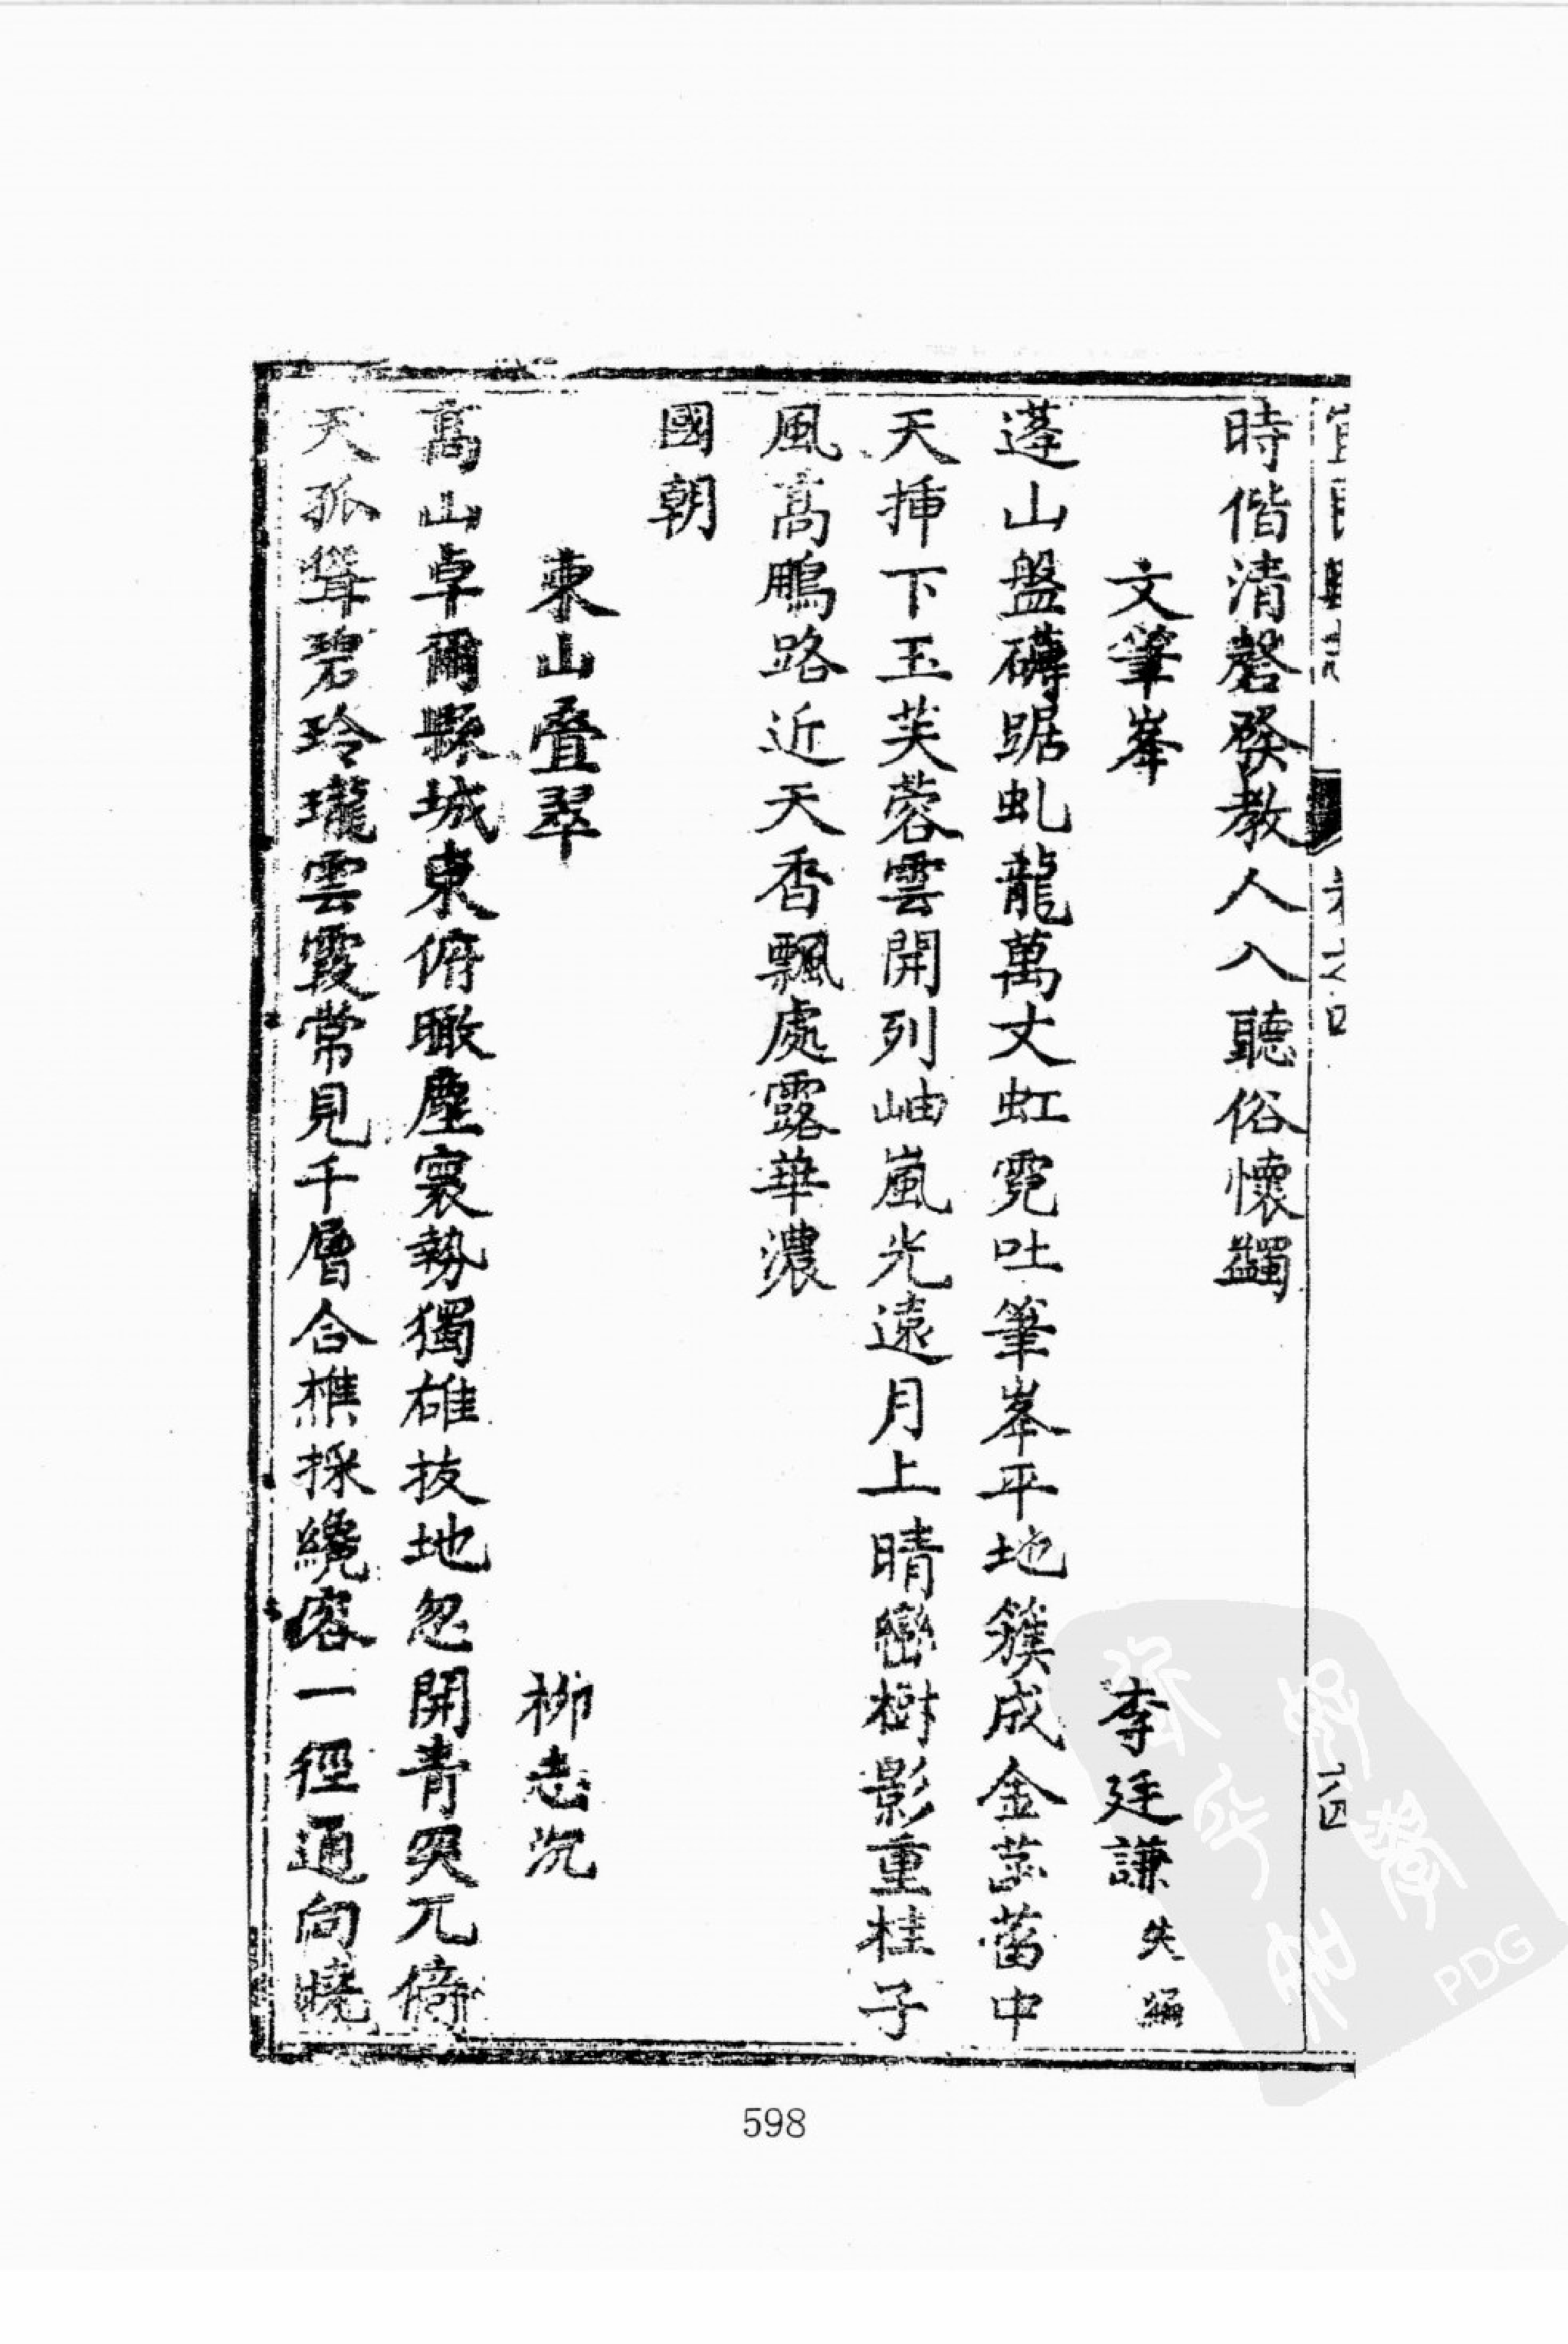 時偕清磬發教人入聽俗懷蠲
文筆峯 李廷謙 失編
蓬山盤礴踞虬龍萬丈虹霓吐筆峯平地簇成金菡萏中
天揷下玉芙蓉雲開列岫嵐光遠月上晴巒樹影重桂子
風高鵬路近天香飄處露華濃
國朝
東山叠翠 柳志沉
高山卓爾縣城東俯瞰塵寰勢獨雄拔地忽開青突兀倚
天孤聳碧玲瓏雲霞常見千層合樵採纔容一徑通向曉
598
PDG